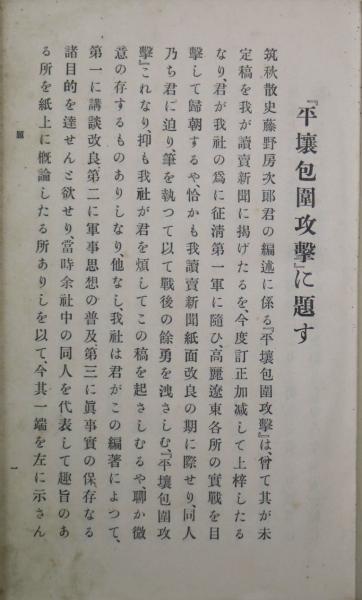 『平壤包圍攻擊』に題す
筑秋散史藤野房次郎君の編述に係る『平壤包圍攻擊』は、曾て其が未
定稿を我が讀賣新聞に揭げたるを、今度訂正加减して上梓したる
なり、君が我社の爲に征淸第一軍に隨ひ、高麗遼東各所の實戰を目
擊して歸朝するや、恰かも我讀賣新聞紙面改良の期に際せり、同人
乃ち君に迫り、筆を執つて以て戰後の餘勇を洩さしむ『平壤包圍攻
擊』これなり、抑も我社が君を煩してこの稿を起さしむるや、聊か微
意の存するものありしなり、他なし、我社は君がこの編著によつて、
第一に講談改良、第二に軍事思想の普及、第三に眞事實の保存なる
諸目的を達せんと欲せり、當時余社中の同人を代表して趣旨のあ
る所を紙上に概論したる所ありしを以て、今其一端を左に示さん
題
一